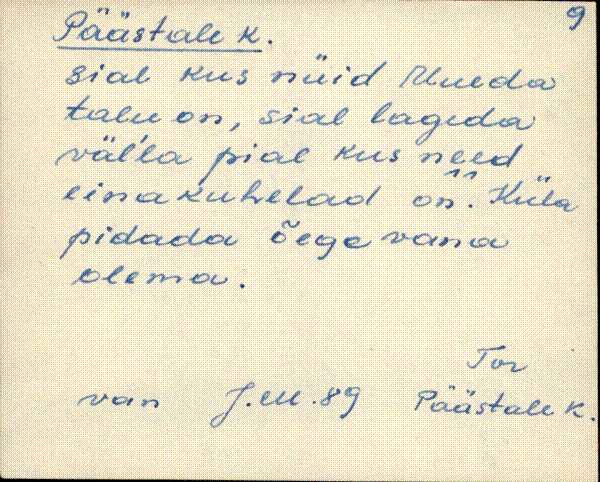 9
Päästale k.
sial kus nüid Uueda
talu on, sial lageda
väl'la pial kus need
einakuhelad on. Küla
pidada õege vana
olema.
Tor
van J.M.89 Päästale k.